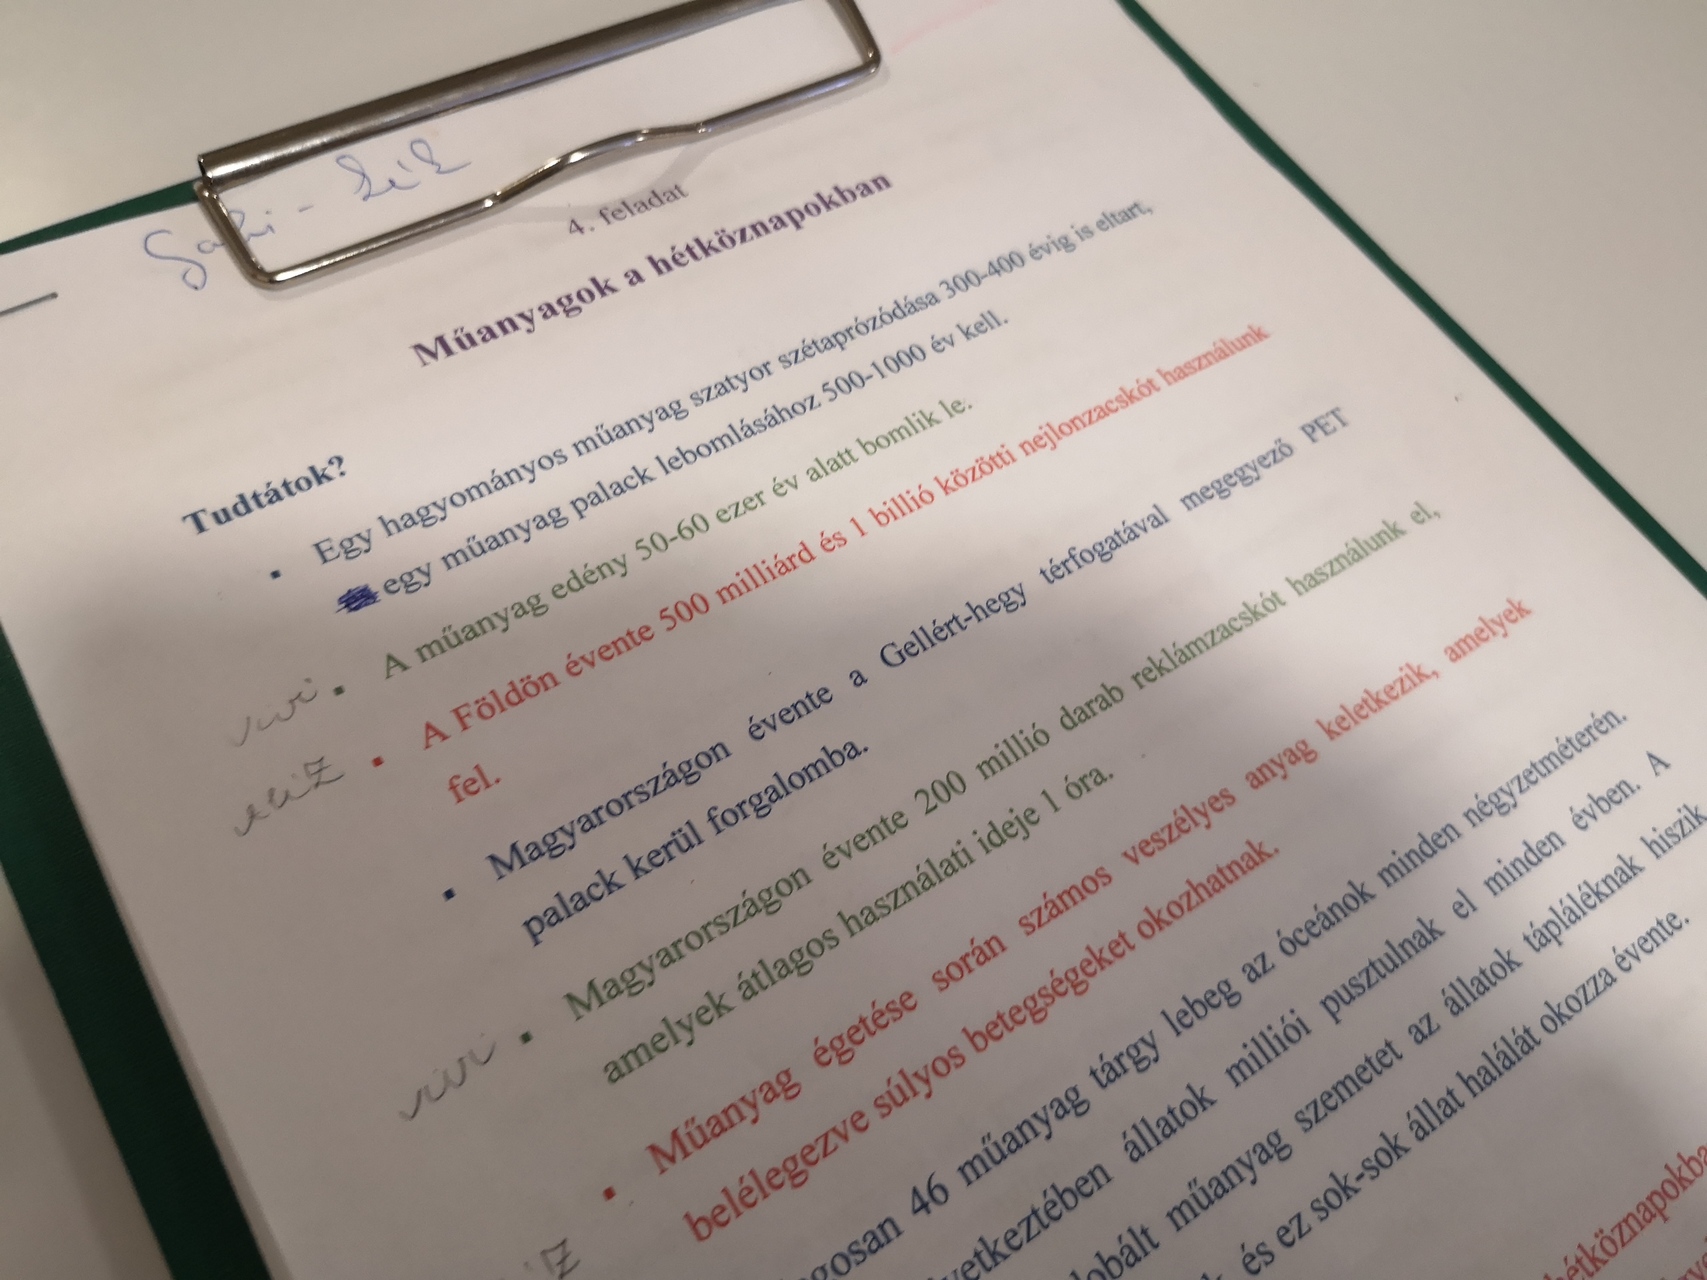 Gabi - kék
4. feladat
Műanyagok a hétköznapokban
Tudtátok?
▪ Egy hagyományos műanyag szatyor szétaprózódása 300-400 évig is eltart,
egy műanyag palack lebomlásához 500-1000 év kell.
vivi ▪ A műanyag edény 50-60 ezer év alatt bomlik le.
eliz ▪ A Földön évente 500 milliárd és 1 billió közötti nejlonzacskót használunk
fel.
▪ Magyarországon évente a Gellért-hegy térfogatával megegyező PET
palack kerül forgalomba.
vivi ▪ Magyarországon évente 200 millió darab reklámzacskót használunk el,
amelyek átlagos használati ideje 1 óra.
▪ Műanyag égetése során számos veszélyes anyag keletkezik, amelyek
belélegezve súlyos betegségeket okozhatnak.
46 műanyag tárgy lebeg az óceánok minden négyzetméterén.
állatok milliói pusztulnak el minden évben. A
műanyag szemetet az állatok tápláléknak hiszik
és ez sok-sok állat halálát okozza évente.